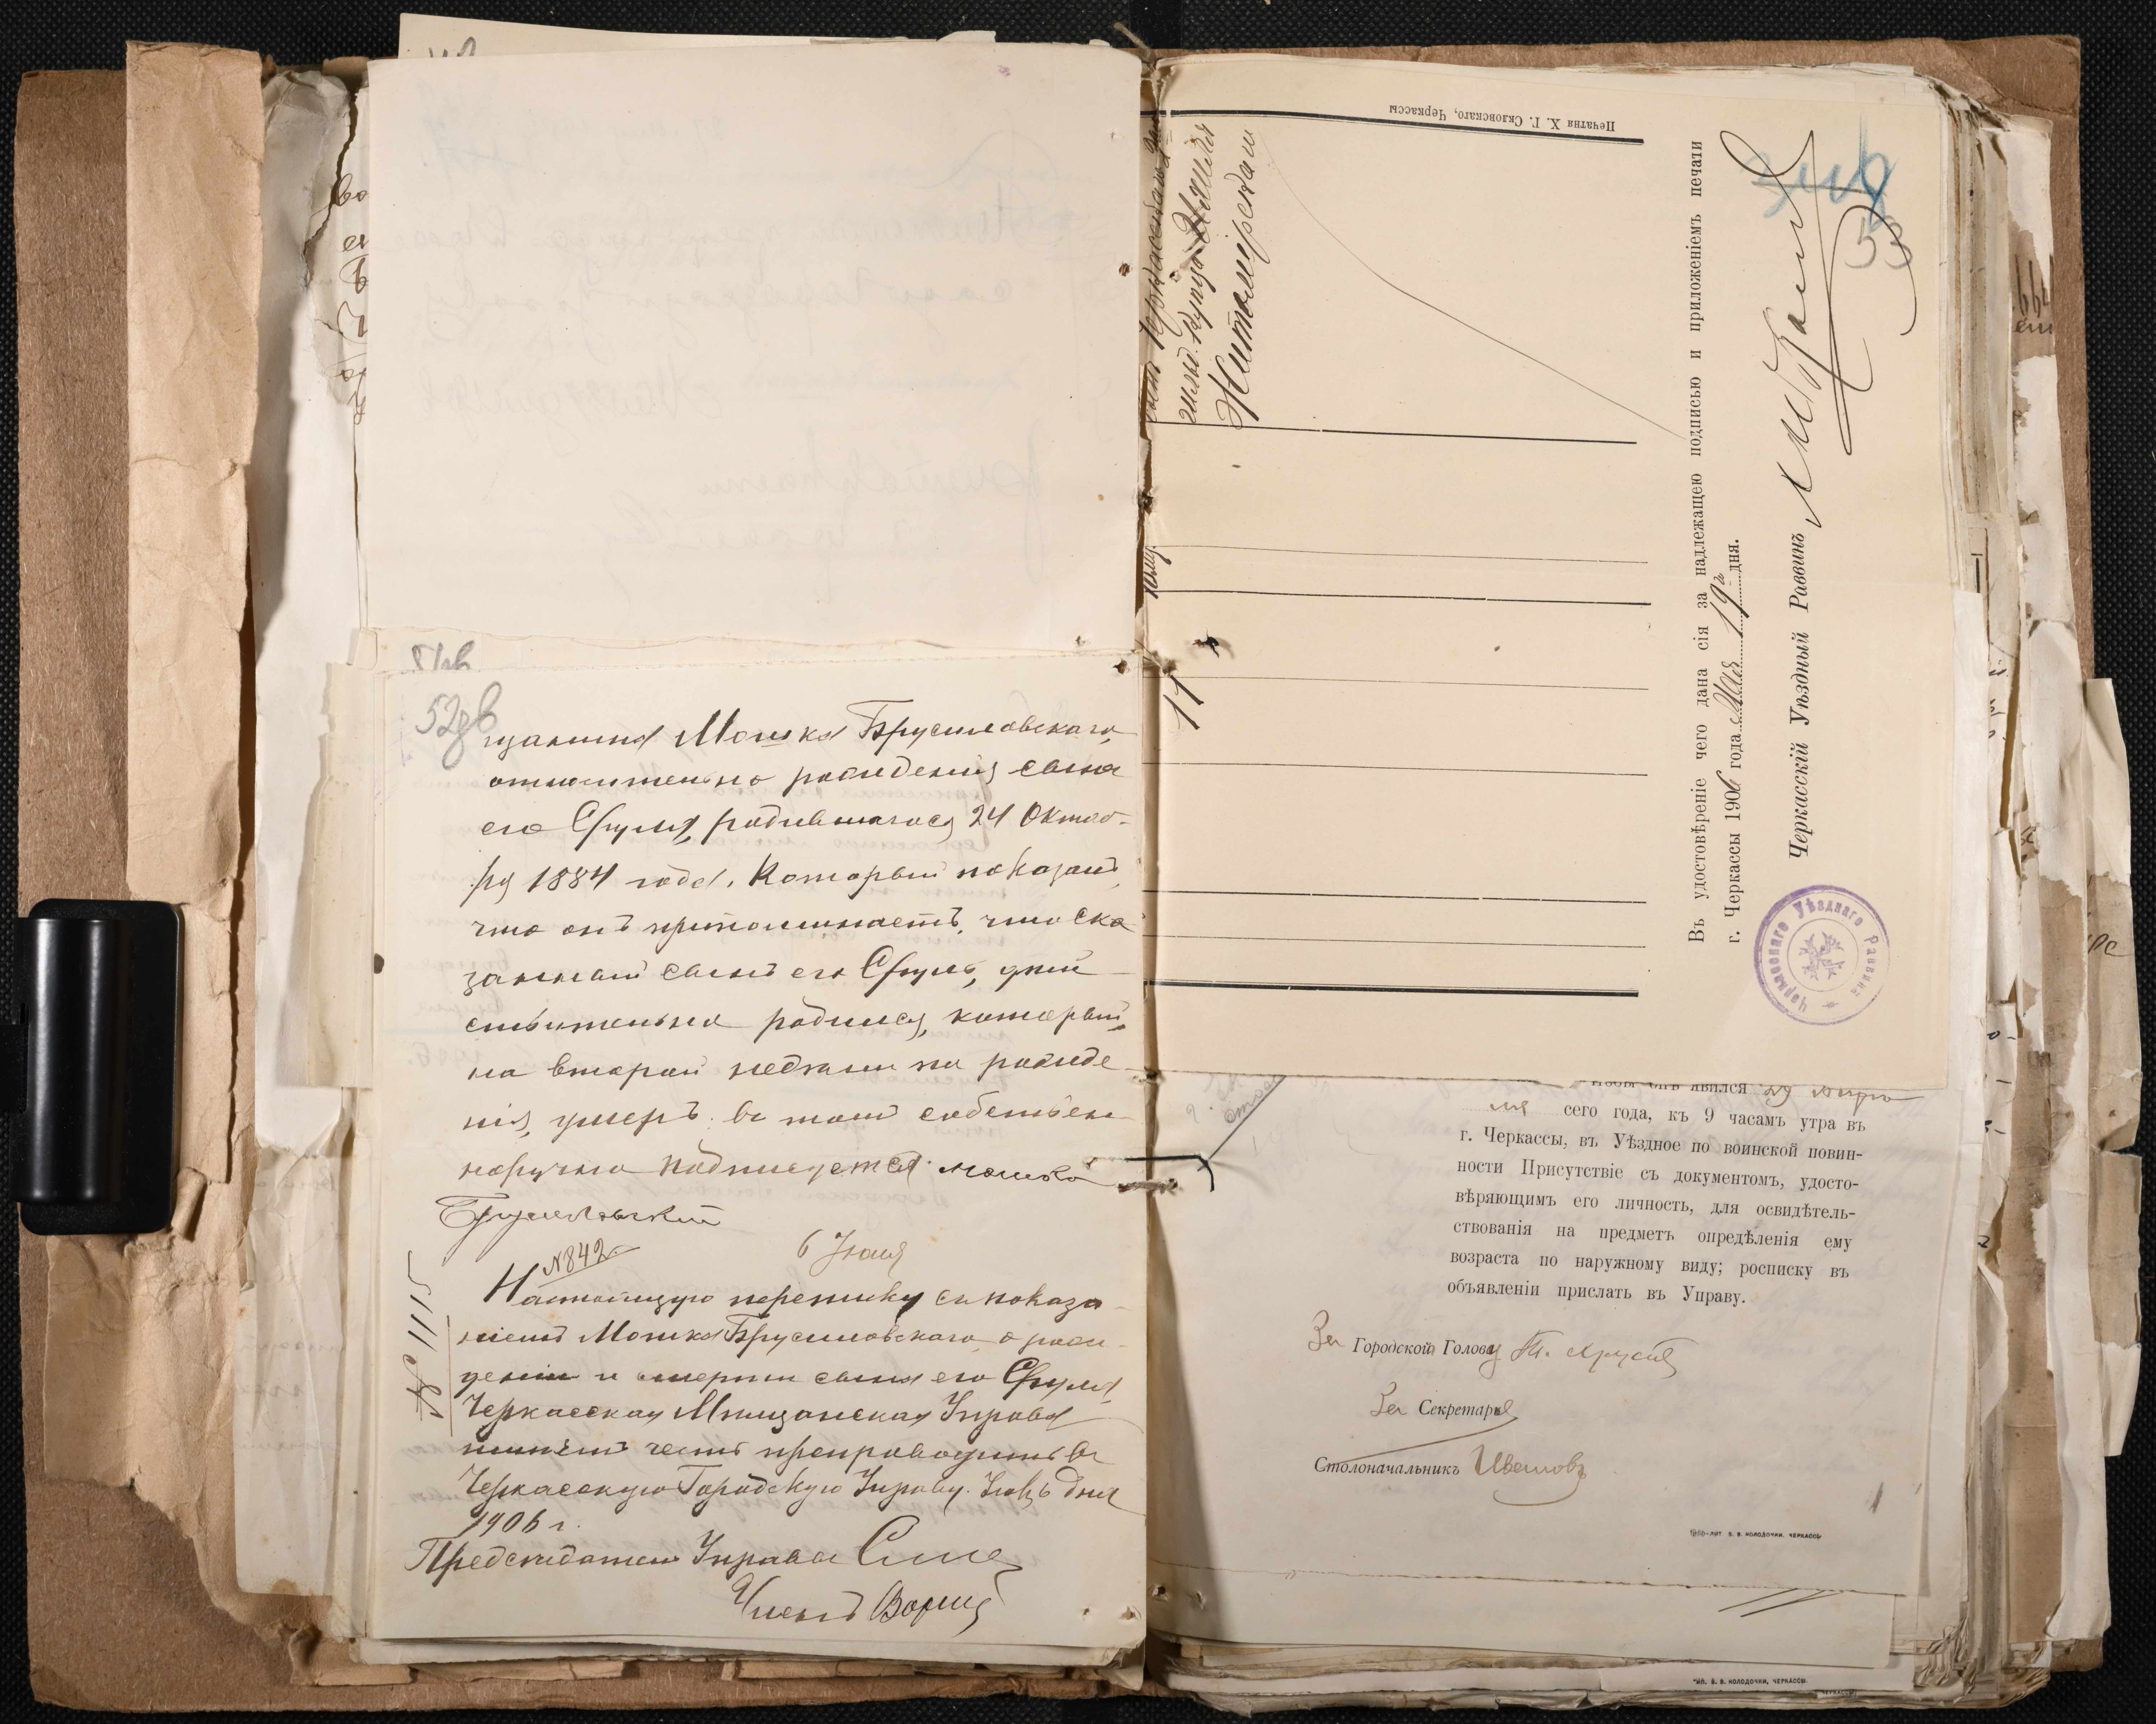 52об
щанина Мошка Брусиловскаго,
относительно рожденія сына
его Сруля, родившагося 24 Октяб-
ря 1884 года, Который показалъ,
что онъ припоминаетъ, что ска
занный сынъ его Сруль, дѣй
ствительно родился, который,
на второй недѣли по рожде
нія, умеръ въ томъ собствен
норучно подписуется Мошко
Брусиловскій
№842 6 Іюня
№ 1115
Настоящую переписку съ показа
ніемъ Мошка Брусиловскаго о рож
деніи и смерти сына его Сруля
Черкасская Мѣщанская Управа
имѣетъ честь препроводить въ
Черкасскую Городскую Управу. Іюня 6 дня
1906 г.
Предсѣдатель Управы
Членъ
Печатня Х. Г. Скловскаго, Черкассы
купца
Житомірскаго
11
Въ удостовѣреніе чего дана сія за надлежащею подписью и приложеніемъ печати
г. Черкассы 1906 года Мая 19 дня.
Черкасскій Уѣздный Раввинъ
Черкасскаго Уѣзднаго Раввина
53
явился 29 Апрѣ
ля сего года, къ 9 часамъ утра въ
г. Черкассы, въ Уѣздное по воинской повин-
ности Присутствіе съ документомъ, удосто-
вѣряющимъ его личность, для освидѣтель-
ствованія на предметъ опредѣленія ему
возраста по наружному виду; росписку въ
объявленіи прислать въ Управу.
За Городской Голову
За Секретаря
Столоначальникъ Ивановъ
В. В. КОЛОДОЧКИ. ЧЕРКАССЫ
ТИП. В. В. КОЛОДОЧКИ, ЧЕРКАССЫ.
ЧЕРКАССЫ